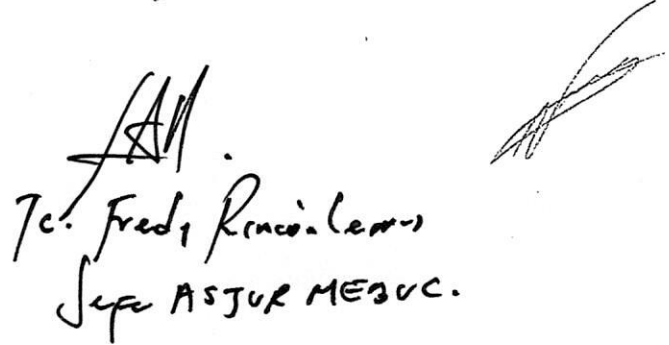 Tc. Fredy Rincón Lemus
Jefe ASJUR MEBUC.